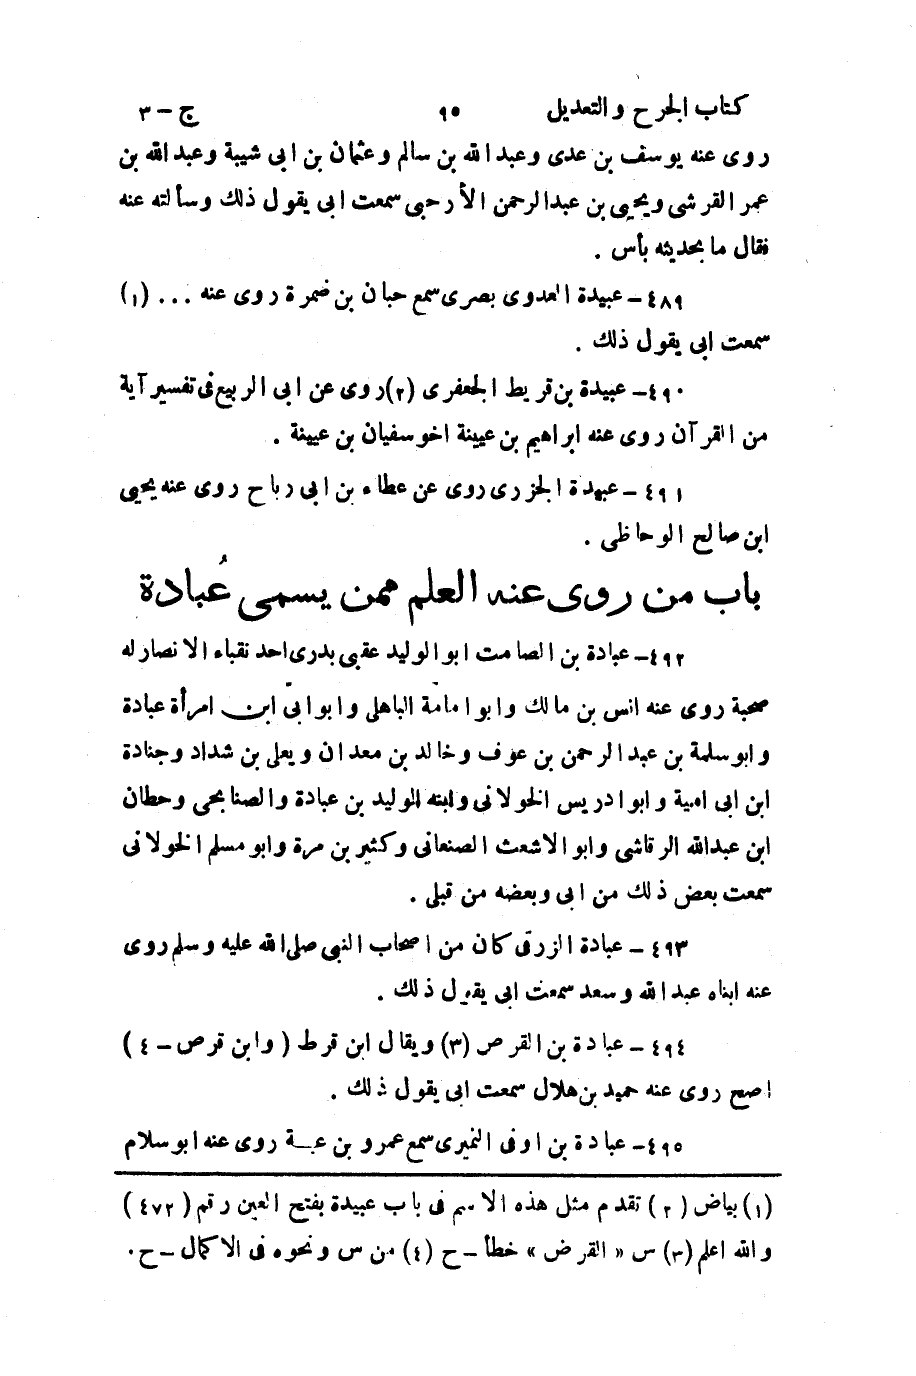 كتاب الجرح والتعديل ٩٥ ج - ٣
روى عنه يوسف بن عدى وعبد الله بن سالم وعثمان بن ابى شيبة وعبد الله بن
عمر القرشى ويحيى بن عبدالرحمن الأرحبى سمعت ابى يقول ذلك وسألته عنه
فقال ما بحديثه بأس .
٤٨٩ - عبيدة العدوى بصرى سمع حبان بن ضمرة روى عنه ... (١)
سمعت ابى يقول ذلك .
٤٩٠ - عبيدة بن قريط الجعفرى (٢) روى عن ابى الربيع فى تفسير آية
من القرآن روى عنه ابراهيم بن عيينة اخو سفيان بن عيينة .
٤٩١ - عبيدة الجزرى روى عن عطاء بن ابى رباح روى عنه يحيى
ابن صالح الوحاظى .
باب من روى عنه العلم ممن يسمى عُبادة
٤٩٢ - عبادة بن الصامت ابو الوليد عقبى بدرى احد نقباء الانصار له
صحبة روى عنه انس بن مالك وابو امامة الباهلى وابو ابىّ ابن امرأة عبادة
وابو سلمة بن عبد الرحمن بن عوف وخالد بن معدان ويعلى بن شداد وجنادة
ابن ابى امية وابو ادريس الخولانى وابنه الوليد بن عبادة والصنابحى وحطان
ابن عبدالله الرقاشى وابو الاشعث الصنعانى وكثير بن مرة وابو مسلم الخولانى
سمعت بعض ذلك من ابى وبعضه من قبلى .
٤٩٣ - عبادة الزرقى كان من اصحاب النبى صلى الله عليه وسلم روى
عنه ابناه عبد الله وسعد سمعت ابى يقول ذلك .
٤٩٤ - عبادة بن القرص (٣) ويقال ابن قرط ( وابن قرص - ٤ )
اصح روى عنه حميد بن هلال سمعت ابى يقول ذلك .
٤٩٥ - عبادة بن اوفى النميرى سمع عمرو بن عبسة روى عنه ابو سلام
(١) بياض (٢) تقدم مثل هذه الاسم فى باب عبيدة بفتح العين رقم (٤٧٢)
والله اعلم (٣) س « القرض » خطأ - ح (٤) من س ونحوه فى الاكمال - ح .